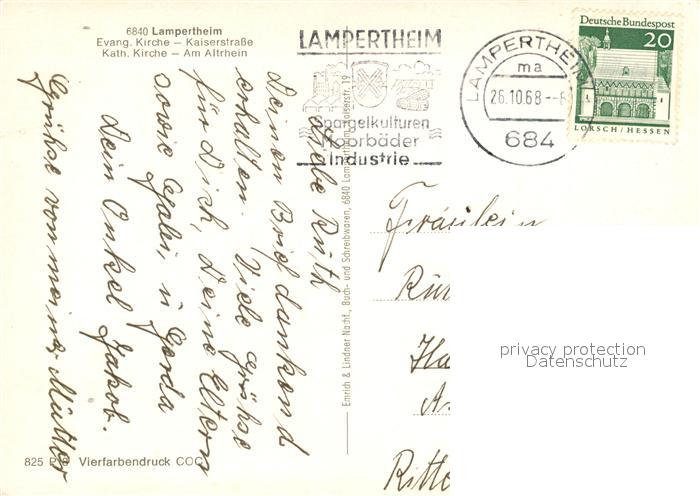 6840 Lampertheim
Evang. Kirche – Kaiserstraße
Kath. Kirche – Am Altrhein
LAMPERTHEIM
Spargelkulturen
Moorbäder
Industrie
LAMPERTHEIM
ma
26.10.68
684
Deutsche Bundespost
20
LORSCH/HESSEN
Liebe Ruth
Deinen Brief dankend
erhalten. Viele Grüße
für Dich, Deine Eltern
sowie Gabi, u Gerda
Dein Onkel Jakob.
Grühse von meiner Mutter
Emrich & Lindner Nachf., Buch- und Schreibwaren, 6840 Lampertheim, Kaiserstr. 19
Fräulein
privacy protection
Datenschutz
825 Vierfarbendruck COC